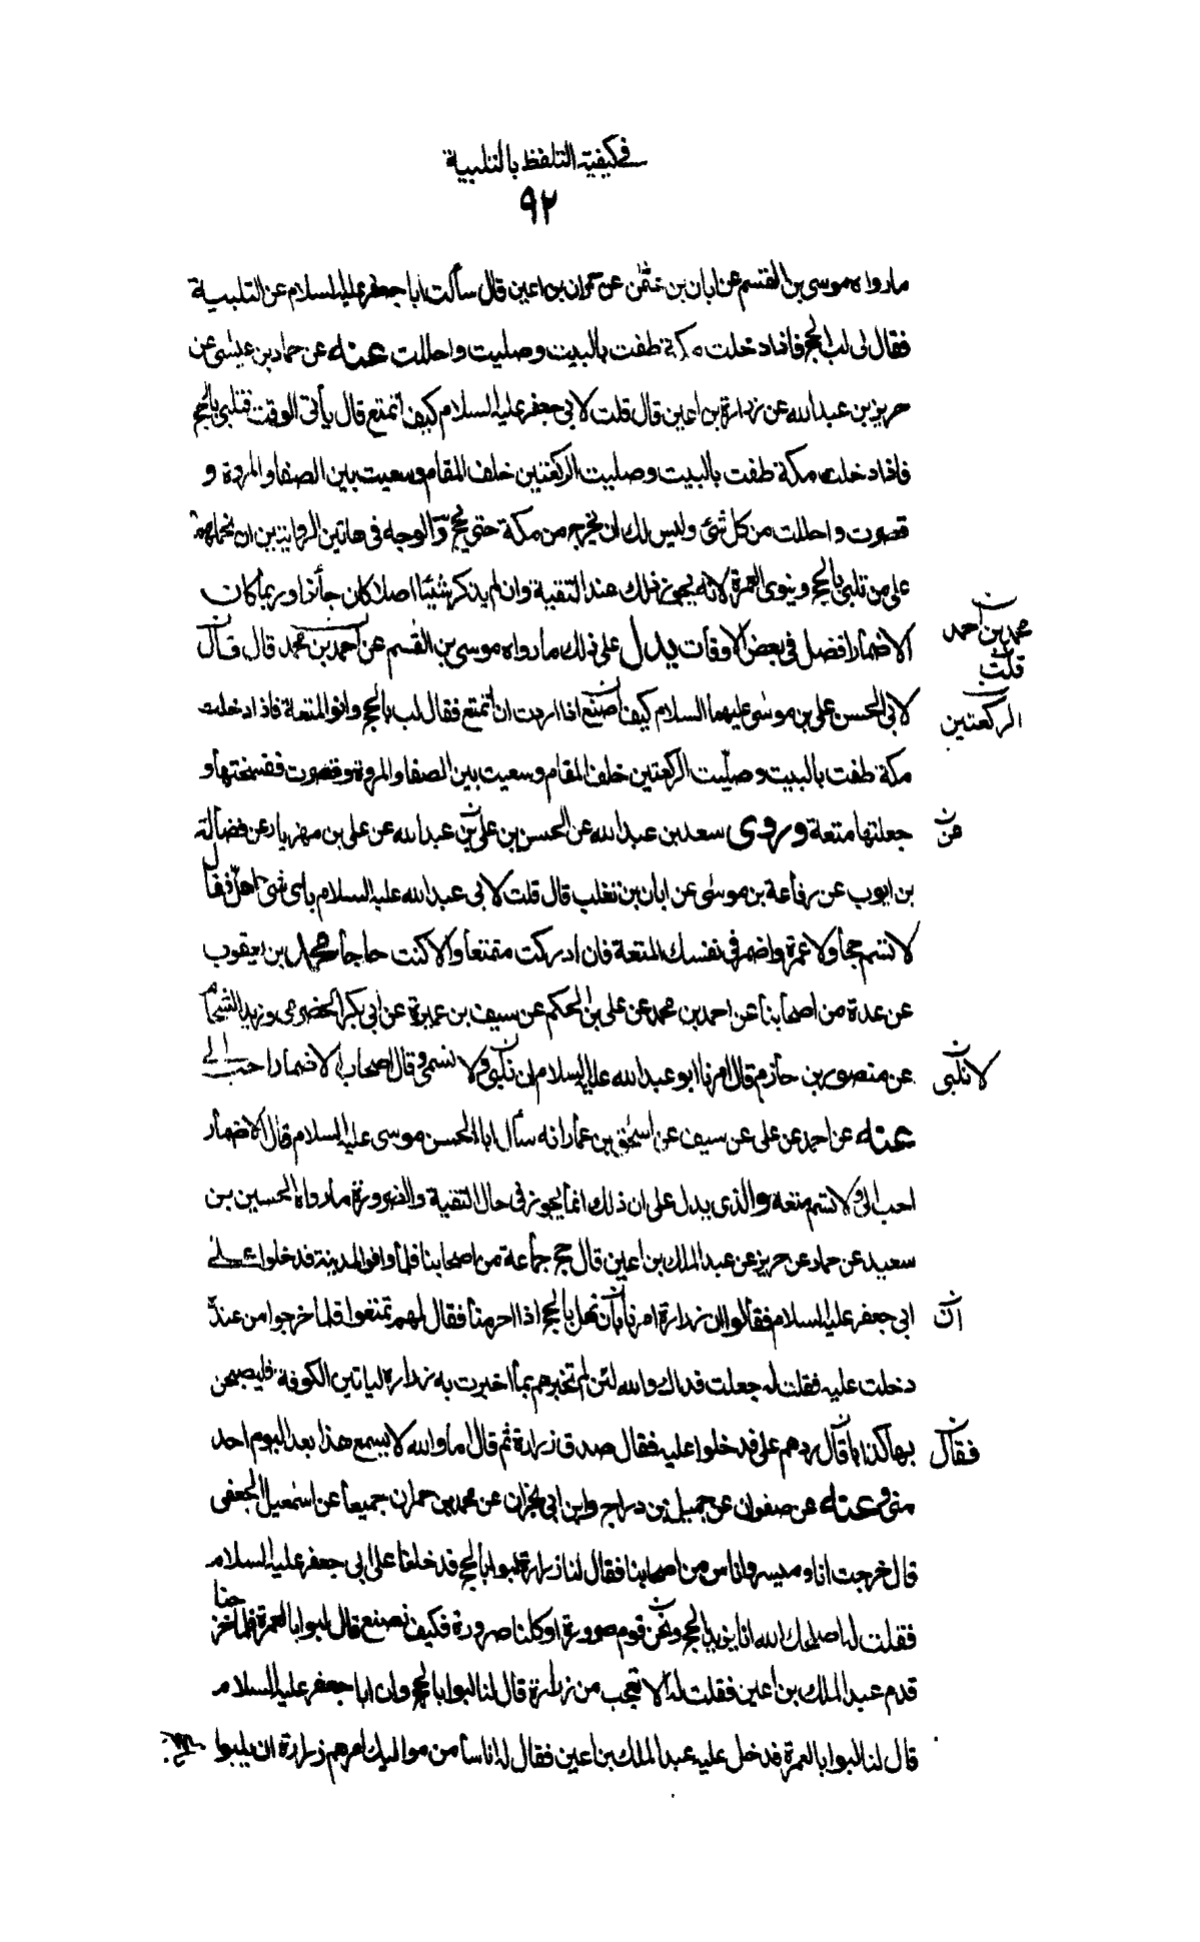 في كيفية التلفظ بالتلبية
٩٢
مارواه موسى بن القسم عن ابان بن عثمٰن عن حمران بن اعين قال سألت ابا جعفر عليه السلام عن التلبية
فقال لى لب بالحج فاذا دخلت مكة طفت بالبيت وصليت واحللت عنه عن حماد بن عيسٰى عن
حريز بن عبدالله عن زرارة بن اعين قال قلت لابى جعفر عليه السلام كيف اتمتع قال يأتى الوقت فتلبى بالحج
فاذا دخلت مكة طفت بالبيت وصليت الركعتين خلف المقام وسعيت بين الصفا والمروة و
قصرت واحللت من كل شئ وليس لك ان تخرج من مكة حتى تحج والوجه فى هاتين الروايتين ان نحملهما
على من تلبى بالحج وينوى العمرة لانه يجوز ذلك عند التقية وان لم يذكر شيئا اصلا كان جائزا وربما كان
الاضمار افضل فى بعض الاوقات يدل على ذلك مارواه موسى بن القٰسم عن احمد بن محمد قال قال
محمد بن احمد
قلت
لابى الحسن على بن موسٰى عليهما السلام كيف اصنع اذا اردت ان اتمتع فقال لب بالحج وانو المتعة فاذا دخلت
الركعتين
مكة طفت بالبيت وصلّيت الركعتين خلف المقام وسعيت بين الصفا والمروة وقصرت ففسختها و
جعلتها متعة وروى سعد بن عبدالله عن الحسن بن على بن عبدالله عن على بن مهزيار عن فضالة
عن
بن ايوب عن رفاعة بن موسٰى عن ابان بن تغلب قال قلت لابى عبدالله عليه السلام باى شئ اهلّ فقال
لا تسم حجا ولا عمرة واضمر فى نفسك المتعة فان ادركت متمتعا والا كنت حاجا محمد بن يعقوب
عن عدة من اصحابنا عن احمد بن محمد عن على بن الحكم عن سيف بن عميرة عن ابى بكر الحضرمى وزيد الشحام
عن منصور بن حازم قال امرنا ابو عبدالله عليه السلام ان نلبى ولا نسمى وقال اصحاب الاضمار احب الى
لا نلبى
عنه عن احمد عن على عن سيف عن اسحٰق بن عمار انه سأل ابا الحسن موسى عليه السلام قال الاضمار
احب الى ولا تسم متعه والذى يدل على ان ذلك انما يجوز فى حال التقية والضرورة مارواه الحسين بن
سعيد عن حماد عن حريز عن عبد الملك بن اعين قال حج جماعة من اصحابنا فلما وافوا المدينة فدخلوا على
ابى جعفر عليه السلام فقالوا ان زرارة امرنا بان نهل بالحج اذا احرمنا فقال لهم تمتعوا فلما خرجوا من عنده
ان
دخلت عليه فقلت له جعلت فداك والله لئن لم تخبرهم بما اخبرت به زرارة لياتين الكوفة فليصبحن
بها كذابا قال ردهم على فدخلوا عليه فقال صدق زرارة ثم قال اما والله لا يسمع هذا بعد اليوم احد
فقال
منى وعنه عن صفوان عن جميل بن دراج وابن ابى نجران عن محمد بن حمران جميعا عن اسمٰعيل الجعفى
قال خرجت انا وميسر وناس من اصحابنا فقال لنا زرارة لبوا بالحج فدخلنا على ابى جعفر عليه السلام
فقلت له اصلحك الله انا نريد الحج ونحن قوم صرورة او كلنا صرورة فكيف نصنع قال لبوا بالعمرة فلما خرجنا
قدم عبد الملك بن اعين فقلت له الا تعجب من زرارة قال لنا لبوا بالحج وان ابا جعفر عليه السلام
قال لنا لبوا بالعمرة فدخل عليه عبد الملك بن اعين فقال له اناسا من مواليك امرهم زرارة ان يلبوا